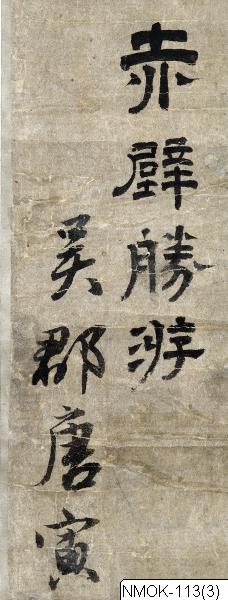 赤壁勝游
吳郡唐寅
NMOK-113(3)